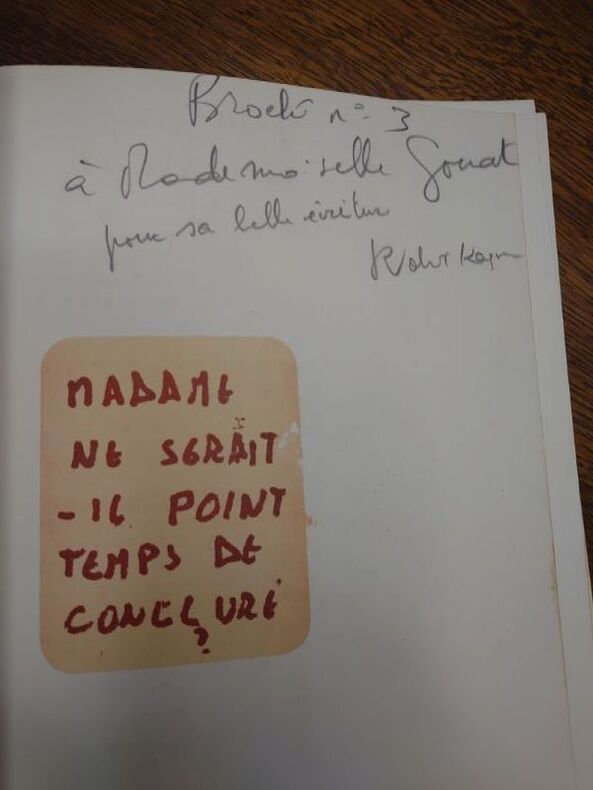 Broché n° 3
à Mademoiselle Gouat
pour sa belle écriture
Robert
MADAME
NE SERAIT
- IL POINT
TEMPS DE
CONCLURE
?